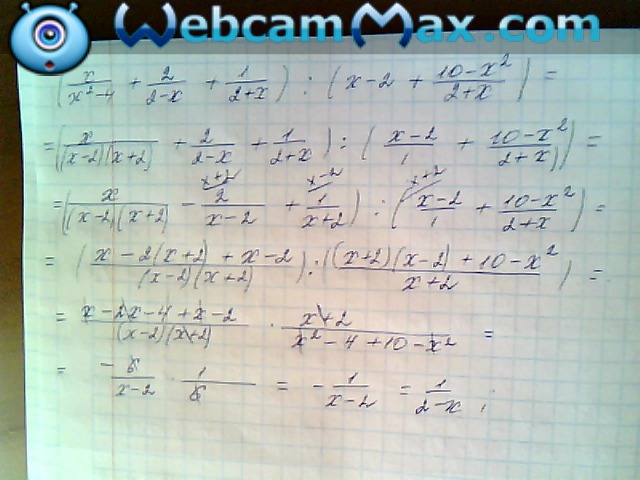 WebcamMax.com
( x/(x²-4) + 2/(2-x) + 1/(2+x) ) : ( x-2 + (10-x²)/(2+x) ) =
= ( x/((x-2)(x+2)) + 2/(2-x) + 1/(2+x) ) : ( (x-2)/1 + (10-x²)/(2+x) ) =
x+2 x-2 x+2
= ( x/((x-2)(x+2)) - 2/(x-2) + 1/(x+2) ) : ( (x-2)/1 + (10-x²)/(2+x) ) =
= ( (x-2(x+2)+x-2)/((x-2)(x+2)) ) : ( ((x+2)(x-2)+10-x²)/(x+2) ) =
= (x-2x-4+x-2)/((x-2)(x+2)) · (x+2)/(x²-4+10-x²) =
= -6/(x-2) · 1/6 = - 1/(x-2) = 1/(2-x) ;